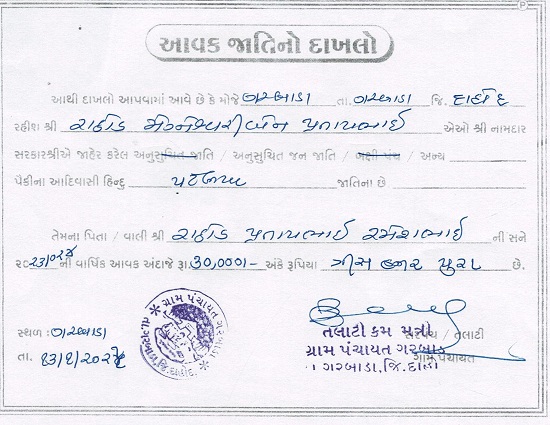 આવક જાતિનો દાખલો
આથી દાખલો આપવામાં આવે છે કે મોજે ગરબાડા તા. ગરબાડા જિ. દાહોદ
રહીશ શ્રી રાઠોડ પ્રતાપભાઈ એઓ શ્રી નામદાર
સરકારશ્રીએ જાહેર કરેલ અનુસુચિત જાતિ / અનુસુચિત જન જાતિ / બક્ષી પંચ / અન્ય
પૈકીના આદિવાસી હિન્દુ જાતિના છે.
તેમના પિતા / વાલી શ્રી રાઠોડ પ્રતાપભાઈ રમેશભાઈ ની સને
૨૦૨૩/૦૨૪ ની વાર્ષિક આવક અંદાજે રૂા. ૩૦,૦૦૦/- અંકે રૂપિયા ત્રીસ હજાર પુરા છે.
સ્થળ : ગરબાડા
તા.
ગ્રામ પંચાયત
તલાટી કમ મંત્રી
સરપંચ / તલાટી
ગ્રામ પંચાયત ગરબાડા
ગ્રામ પંચાયત
ગરબાડા, જિ. દાહોદ